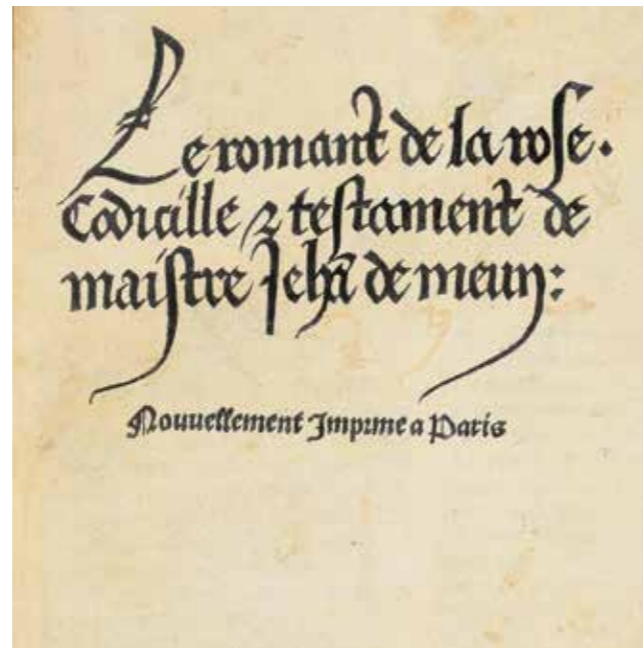 Le romant de la rose.
Codicille ⁊ testament de
maistre Jehā de meun:
Nouuellement Imprime a Paris